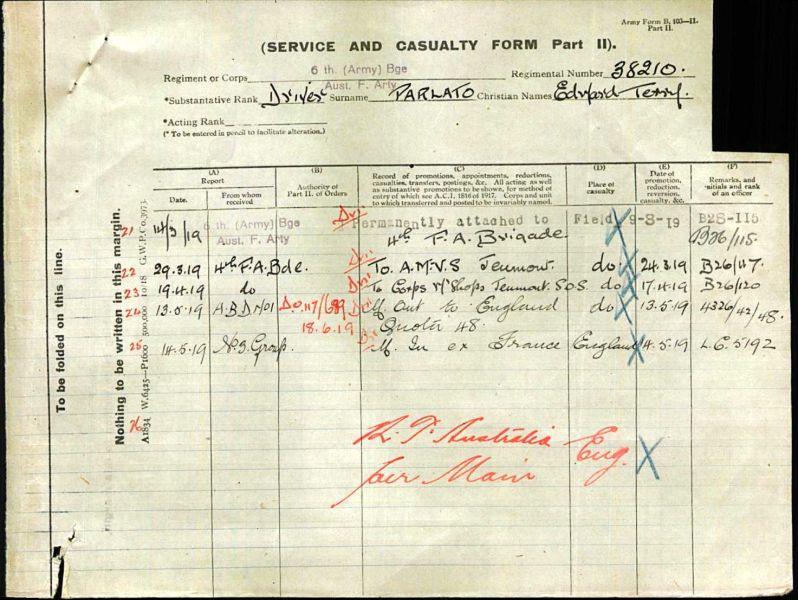 Army Form B. 103—II.
Part II.
(SERVICE AND CASUALTY FORM Part II).
Regiment or Corps 6 th. (Army) Bge Aust. F. Arty Regimental Number 38210.
*Substantive Rank Driver Surname PARLATO Christian Names Edward Terry.
*Acting Rank
(* To be entered in pencil to facilitate alteration.)
(A) Report
Date. From whom received
(B) Authority of Part II. of Orders
(C) Record of promotions, appointments, reductions, casualties, transfers, postings, &c. All acting as well as substantive promotions to be shown, for method of entry of which see A.C.I. 1816 of 1917. Corps and unit to which transferred and posted to be invariably named.
(D) Place of casualty
(E) Date of promotion, reduction, reversion, casualty, &c.
(F) Remarks, and initials and rank of an officer
21 14/3/19 6 th. (Army) Bge Aust. F. Arty Dvr. Permanently attached to Field 9-3-19 B28-115
4th F.A. Brigade. B26/115.
22 29.3.19 4th F.A. Bde. Dvr. To A.M.V.S Jeumont. do 24.3.19 B26/117
23 19.4.19 do Dvr. To Corps W/Shops Jeumont. S.O.S. do 17.4.19 B26/120
24 13.5.19 A.B.D No1 D.O.117/689 Dvr. M. Out to England do 13.5.19 4326/42/48.
18.6.19 Quota 48.
25 14.5.19 No.3. Group. Dr M. In ex France England 14.5.19 L.C.5192
26
R.T. Australia Eng.
per Main
To be folded on this line.
Nothing to be written in this margin.
A1834 W.6425—P1600 500,000 10/18 G.W.P.Co.3973